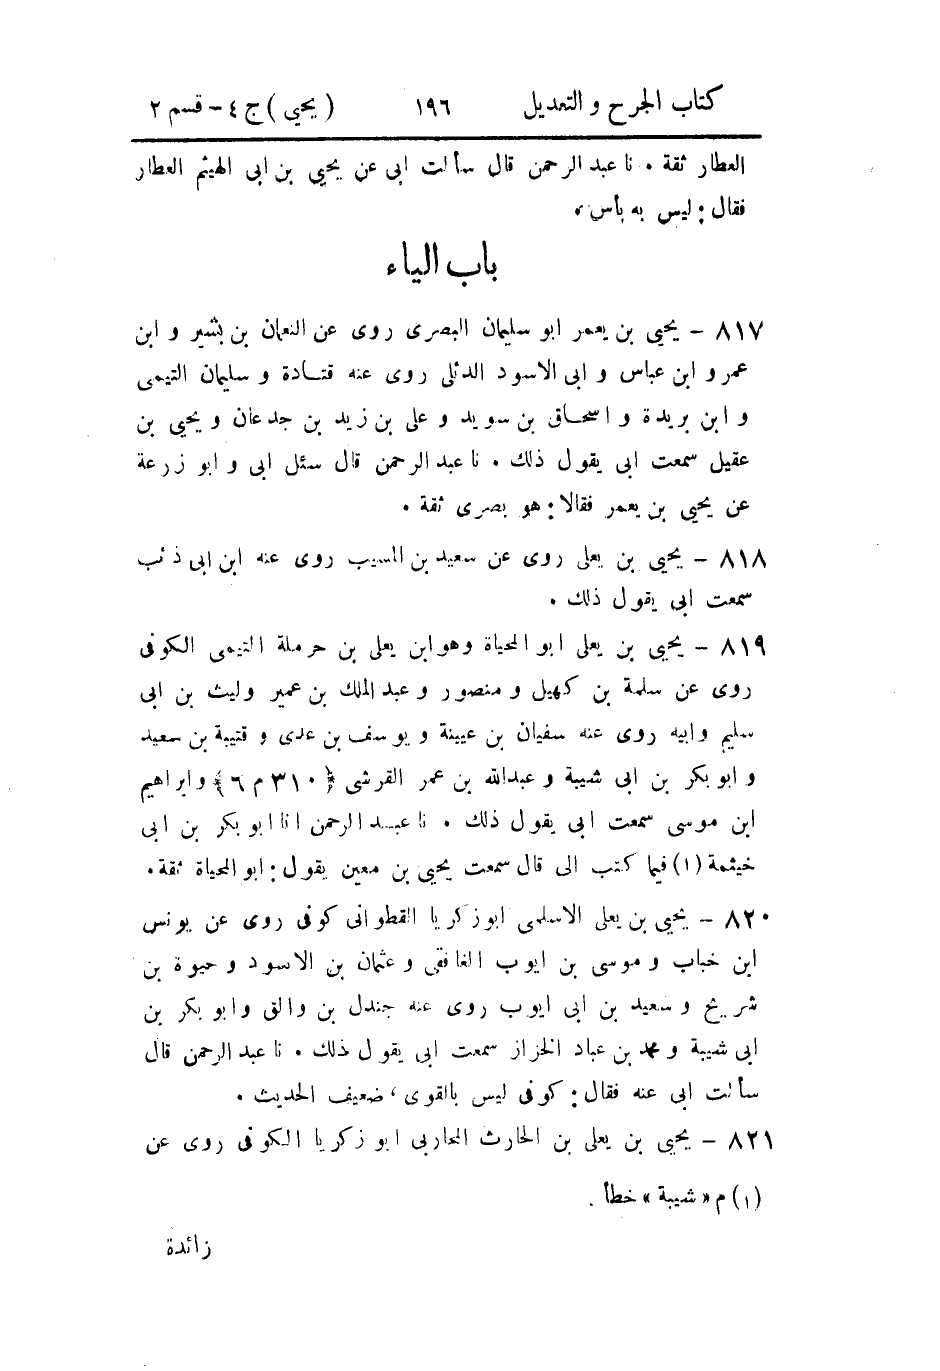 كتاب الجرح و التعديل ١٩٦ (يحيى) ج ٤ - قسم ٢
العطار ثقة . نا عبد الرحمن قال سألت ابى عن يحيى بن ابى الهيثم العطار
فقال : ليس به بأس .
باب الياء
٨١٧ - يحيى بن يعمر ابو سليمان البصرى روى عن النعمان بن بشير و ابن
عمر و ابن عباس و ابى الاسود الدئلى روى عنه قتادة و سليمان التيمى
و ابن بريدة و اسحاق بن سويد و على بن زيد بن جدعان و يحيى بن
عقيل سمعت ابى يقول ذلك . نا عبد الرحمن قال سئل ابى و ابو زرعة
عن يحيى بن يعمر فقالا : هو بصرى ثقة .
٨١٨ - يحيى بن يعلى روى عن سعيد بن المسيب روى عنه ابن ابى ذئب
سمعت ابى يقول ذلك .
٨١٩ - يحيى بن يعلى ابو المحياة وهو ابن يعلى بن حرملة التيمى الكوفى
روى عن سلمة بن كهيل و منصور و عبد الملك بن عمير وليث بن ابى
سليم وابيه روى عنه سفيان بن عيينة و يوسف بن عدى و قتيبة بن سعيد
و ابو بكر بن ابى شيبة و عبدالله بن عمر القرشى ﴿٣١٠ م ٦﴾ و ابراهيم
ابن موسى سمعت ابى يقول ذلك . نا عبد الرحمن انا ابو بكر بن ابى
خيثمة (١) فيما كتب الى قال سمعت يحيى بن معين يقول : ابو المحياة ثقة .
٨٢٠ - يحيى بن يعلى الاسلمى ابو زكريا القطوانى كوفى روى عن يونس
ابن خباب و موسى بن ايوب الغافقى و عثمان بن الاسود و حيوة بن
شريح و سعيد بن ابى ايوب روى عنه جندل بن والق وابو بكر بن
ابى شيبة و محمد بن عباد الخزاز سمعت ابى يقول ذلك . نا عبد الرحمن قال
سألت ابى عنه فقال : كوفى ليس بالقوى ، ضعيف الحديث .
٨٢١ - يحيى بن يعلى بن الحارث المحاربى ابو زكريا الكوفى روى عن
(١) م « شيبة » خطأ .
زائدة